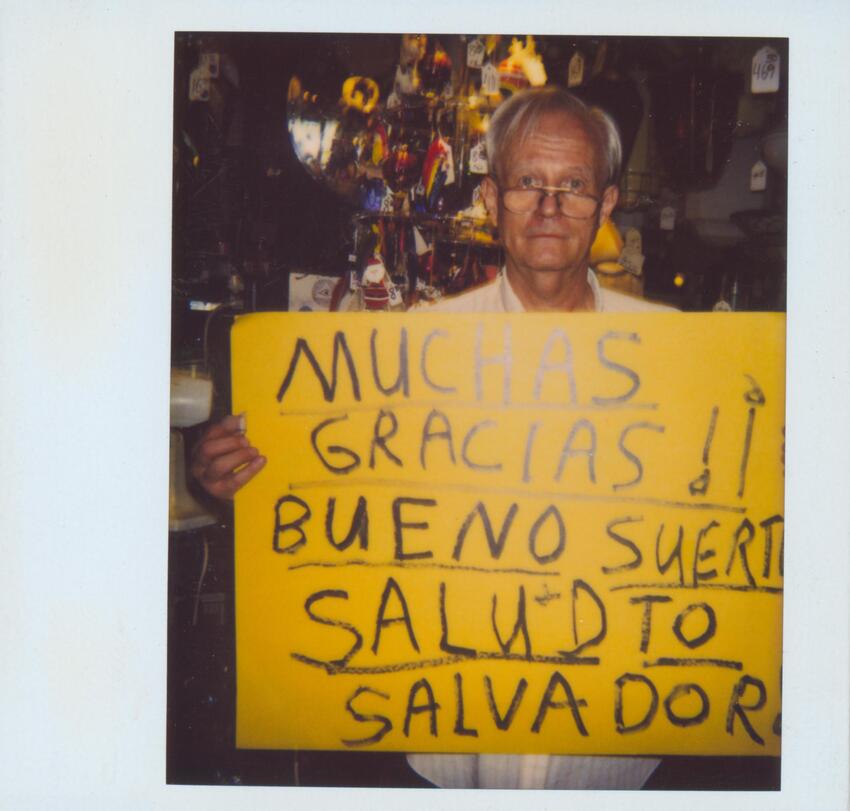 MUCHAS
GRACIAS !¡
BUENO SUERT
SALUD TO
SALVADOR!
469